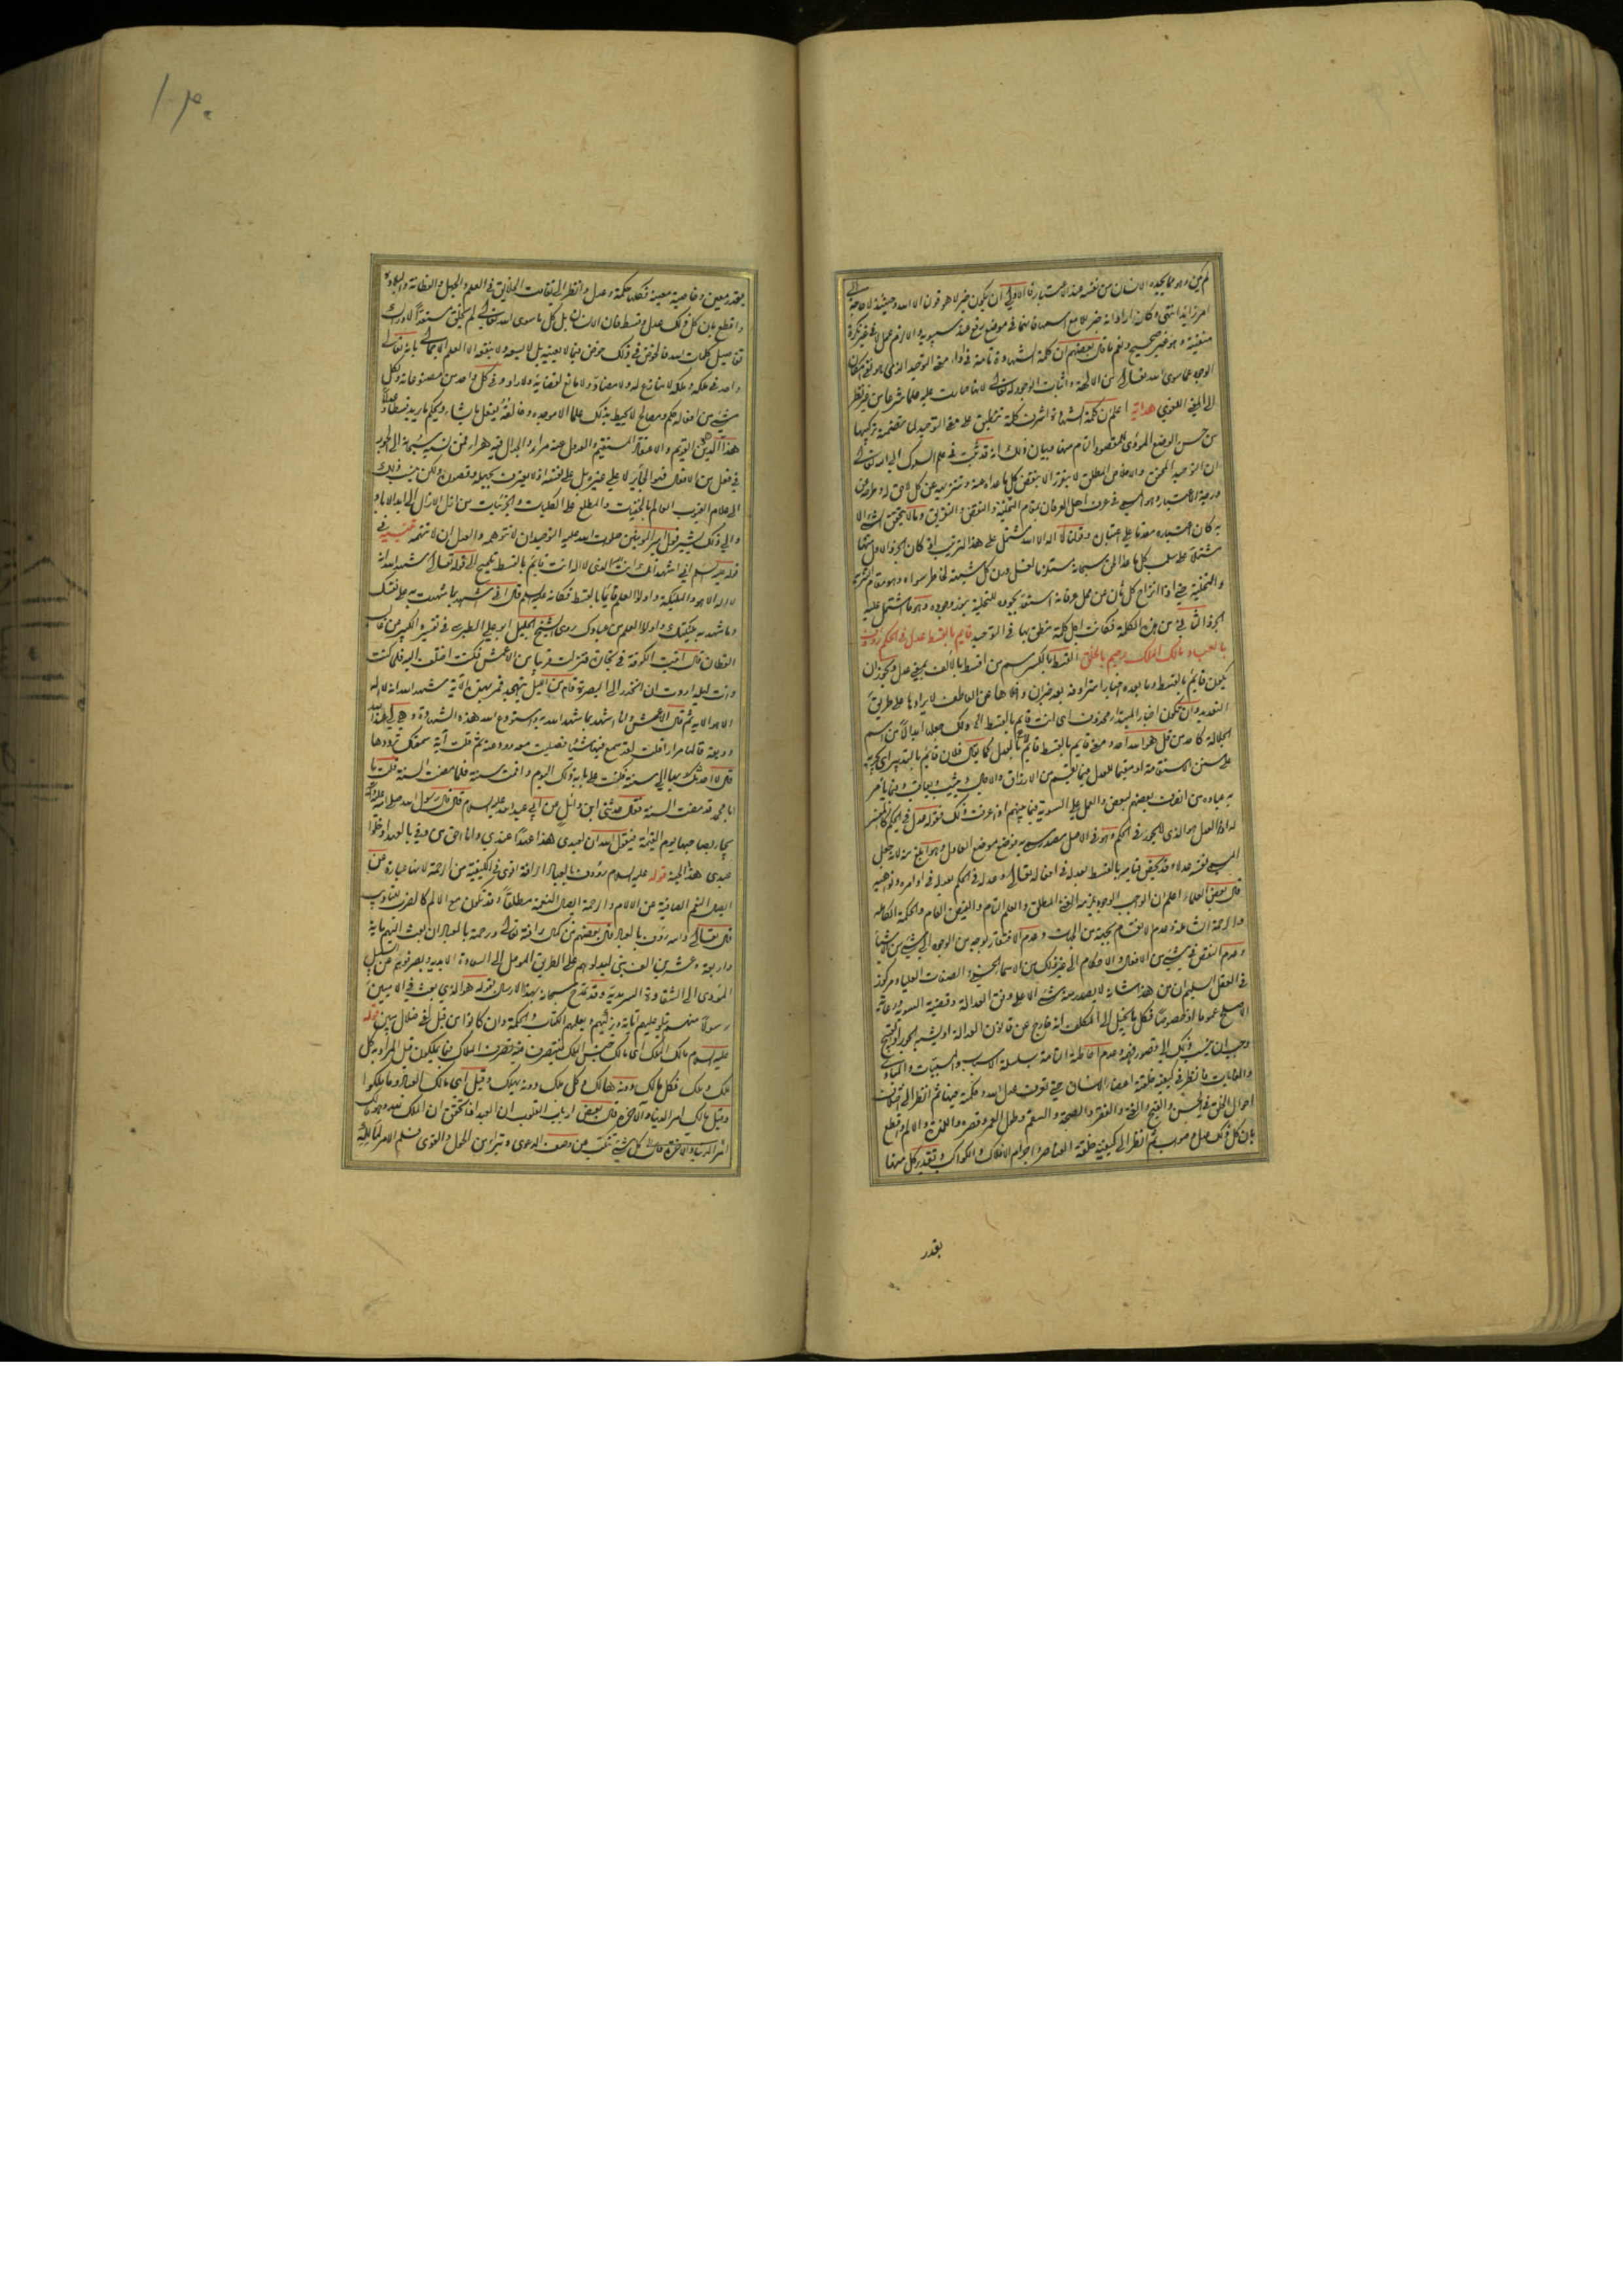 لم يكن وهو مما يجده الانسان من نفسه عند الاعتبار فالاولى ان يكون خبر لا هو قولنا الا الله وحينئذ لا حاجة الى
امر زايد انتهى وكانه اراد انه خبر لا مع اسمها فانهما في موضع رفع عند سيبويه والا لزم عمل لا في غير نكرة
منفية وهو غير صحيح ونعم ما قال بعضهم ان كلمة الشهادة تامة في اداء معنى التوحيد الذي هو نفي امكان
الوجود عما سوى الله تعالى من الالهة واثبات الوجود له تعالى لانها صارت عليه علما شرعا من غير نظر
الى المعنى اللغوي هداية اعلم ان كلمة الشهادة اشرف كلمة تنطبق على معنى التوحيد لما تتضمنه تركيبها
من حسن الوضع المودي للمقصود التام منها وبيان ذلك انه قد ثبت في علم السلوك الى الله تعالى
ان التوحيد المحض والاخلاص المطلق لا يتقرر الا بنقض كل ما عداه عنه وتنزيهه عن كل لاحق له وطرحه عن
درجة الاعتبار وهو المسمى في عرف اهل العرفان بمقام التخلية والنقض والتفريق وما لا يتحقق الشيء الا
به كان اعتباره مقدما على اعتباره وقولنا لا اله الا الله مشتمل على هذا الترتيب اذ كان الجزء الاول منها
مشتملا على سلب كل ما عدا الحق سبحانه مستلزما لغسل درن كل شبهة لخاطر سواه وهو مقام التنزيه
والتخلية حتى اذا انزاح كل ثان عن محل عرفانه استعد بجوده للتحلية بنور وجوده وهو ما اشتمل عليه
الجزء الثاني من هذه الكلمة فكانت اجل كلمة نطق بها في التوحيد قايم بالقسط عدل في الحكم رؤوف
بالعباد مالك الملك رحيم بالخلق القسط بالكسر اسم من اقسط بالالف بمعنى عدل ويجوز ان
يكون قايم بالقسط وما بعده اخبارا مترادفة بعد خبر ان واخلاها عن العاطف لايرادها على طريق
التعديد وان تكون اخبار المبتداء محذوف اى انت قايم بالقسط الى ولك جعلها ابدالا من اسم
الجلالة كاحد من قل هو الله احد ومعنى قايم بالقسط قايم بالعدل كما يقال فلان قايم بالتدبير اى يجريه
على سنن الاستقامة او مقيما للعدل فيما يقسم من الارزاق والاجال ويثيب ويعاقب وفيما يامر
به عباده من انصاف بعضهم لبعض والعمل على السوية فيما بينهم اذا عرفت ذلك فقوله عدل في الحكم كالمفسر
له اذ العدل هو الذي لا يجور في الحكم وهو في الاصل مصدر سمي به فوضع موضع العادل وهو ابلغ منه لانه جعل
المسمى نفسه عدلا وقد يخص قيامه بالقسط بعدله في افعاله تعالى وعدله في الحكم بعدله في اوامره ونواهيه
قال بعض العلماء اعلم ان الواجب الوجود يلزمه الغنى المطلق والعلم التام والفيض العام والحكمة الكاملة
والرحمة الشاملة وعدم الانقسام بجهة من الجهات وعدم الافتقار بوجه من الوجوه الى شيء من الاشياء
وعدم النقص في شيء من الافعال والاحكام الى غير ذلك من الاسماء الحسنى والصفات العليا ومركوز
في العقل السليم ان من هذا شانه لا يصدر عنه شيء الا على وفق العدالة وقضية السوية ورعاية
الاصلح عموما او خصوصا فكل ما يخيل الى المكلف انه خارج عن قانون العدالة او يشبه الجور او القبح
وجب ان ينسب ذلك الى قصور فهمه وعدم احاطته التامة بسلسلة الاسباب والمسببات والمبادي
والغايات فانظر في كيفية خلقة اعضاء الانسان حتى تعرف عدل الله وحكمته فيها ثم انظر الى اختلاف
احوال الخلق في الحسن والقبح والغنى والفقر والصحة والسقم وطول العمر وقصره واللذة والالم واقطع
بان كل ذلك عدل وصواب ثم انظر الى كيفية خلقة العناصر واجرام الافلاك والكواكب وتقدير كل منها
بقدر
١٠٣٠
بقدر معين وخاصية معينة فكلها حكمة وعدل وانظر الى تفاوت الخلايق في العلم والجهل والفطانة والبلادة
واقطع بان كل ذلك عدل وقسط فان الانسان بل كل ما سوى الله تعالى لم يخلق مستعدا لادراك
تفاصيل كلمات الله فالخوض في ذلك خوض فيما لا يعنيه بل لا يسعه ولا ينفعه الا العلم الاجمالي بانه تعالى
واحد في ملكه وملكه لا منازع له ولا مضاد ولا مانع لقضائه ولا راد وفي كل واحد من مصنوعاته ولكل
شيء من افعاله حكم ومصالح لا يحيط بذلك علما الا موجده وخالقه يفعل ما يشاء ويحكم ما يريد قسطا وعدلا
هذا الدين القويم والاعتقاد المستقيم والعدول عنه مراء والجدال فيه هراء فمن نسبه سبحانه الى الجور
في فعل من الافعال فهو الجائر لا على غيره بل على نفسه اذ لا يعترف بجهله وقصوره ولكن ينسب ذلك
الى علام الغيوب العالم بالخفيات والمطلع على الكليات والجزئيات من ازل الازال الى ابد الاباد
والى ذلك يشير قول امير المومنين صلوات الله عليه التوحيد ان لا تتوهمه والعدل ان لا تتهمه تنبيه في
قوله عليه السلم اني اشهد انك انت الله الذي لا اله انت قايم بالقسط تلميح الى قوله تعالى شهد الله انه
لا اله الا هو والملئكة واولوا العلم قايما بالقسط فكانه عليه السلم قال اني اشهد بما شهدت به على نفسك
وما شهد به ملئكتك واولوا العلم من عبادك روى الشيخ الجليل ابو علي الطبرسي في تفسيره الكبير عن غالب
القطان قال اتيت الكوفة في تجارة فنزلت قريبا من الاعمش فكنت اختلف اليه فلما كنت
ذات ليلة اردت ان انحدر الى البصرة قام من الليل يتهجد فمر بهذه الاية شهد الله انه لا اله
الا هو الاية ثم قال الاعمش وانا اشهد بما شهد الله به واستودع الله هذه الشهادة وهي لي عند الله
وديعة قالها مرارا قلت لقد سمع فيها شيئا فصليت معه وودعته ثم قلت آية سمعتك ترددها
قال لا احدثك بها الى سنة فكتبت على بابه ذلك اليوم واقمت سنة فلما مضت السنة قلت يا
ابا محمد قد مضت السنة فقال حدثني ابن وائل عن ابي عبد الله عليه السلام قال قال رسول الله صلى الله عليه وآله
يجاء بصاحبها يوم القيمة فيقول الله ان لعبدي هذا عهدا عندي وانا احق من وفى بالعهد ادخلوا
عبدي هذا الجنة قوله عليه السلام رؤوف بالعباد الرافة اقوى في الكيفية من الرحمة لانها عبارة عن
ايصال النعم الصافية عن الالام والرحمة ايصال النعمة مطلقا وقد تكون مع الالم كالضرب للتاديب
قال تعالى والله رؤف بالعباد قال بعضهم من كمال رافة تعالى ورحمته بالعباد ان بعث اليهم ماية
واربعة وعشرين الف نبي ليدلوهم على الطريق الموصل الى السعادة الابدية ويصرفوهم عن السبل
المؤدى الى الشقاوة السرمدية وقد تمدح سبحانه بهذا الارسال بقوله هو الذي بعث في الاميين
رسولا منهم يتلو عليهم آياته ويزكيهم ويعلمهم الكتاب والحكمة وان كانوا من قبل لفي ضلال مبين قوله
عليه السلام مالك الملك اى مالك جنس الملك فيتصرف فيه تصرف الملاك فيما يملكون قيل المراد به كل
ملك وملك فكل مالك دونه هالك وكل ملك دونه يهلك وقيل اى مالك العباد وما ملكوا
وقيل مالك امر الدنيا والاخرة وقال بعض ارباب القلوب ان العبد اذا تحقق ان الملك لله وهو مالك
امر الدنيا والاخرة ومالك كل شيء تنكب عن وصف الدعوى وتبرا من الحول والقوى فسلم الامر لمالكه